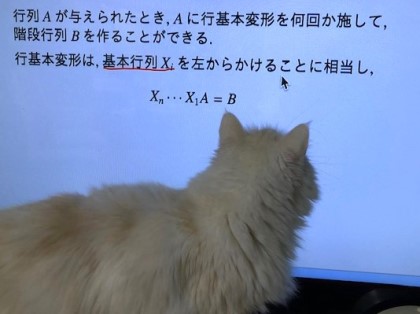 行列 A が与えられたとき, A に行基本変形を何回か施して,
階段行列 B を作ることができる.
行基本変形は, 基本行列 Xᵢ を左からかけることに相当し,
Xₙ ⋯ X₁A = B